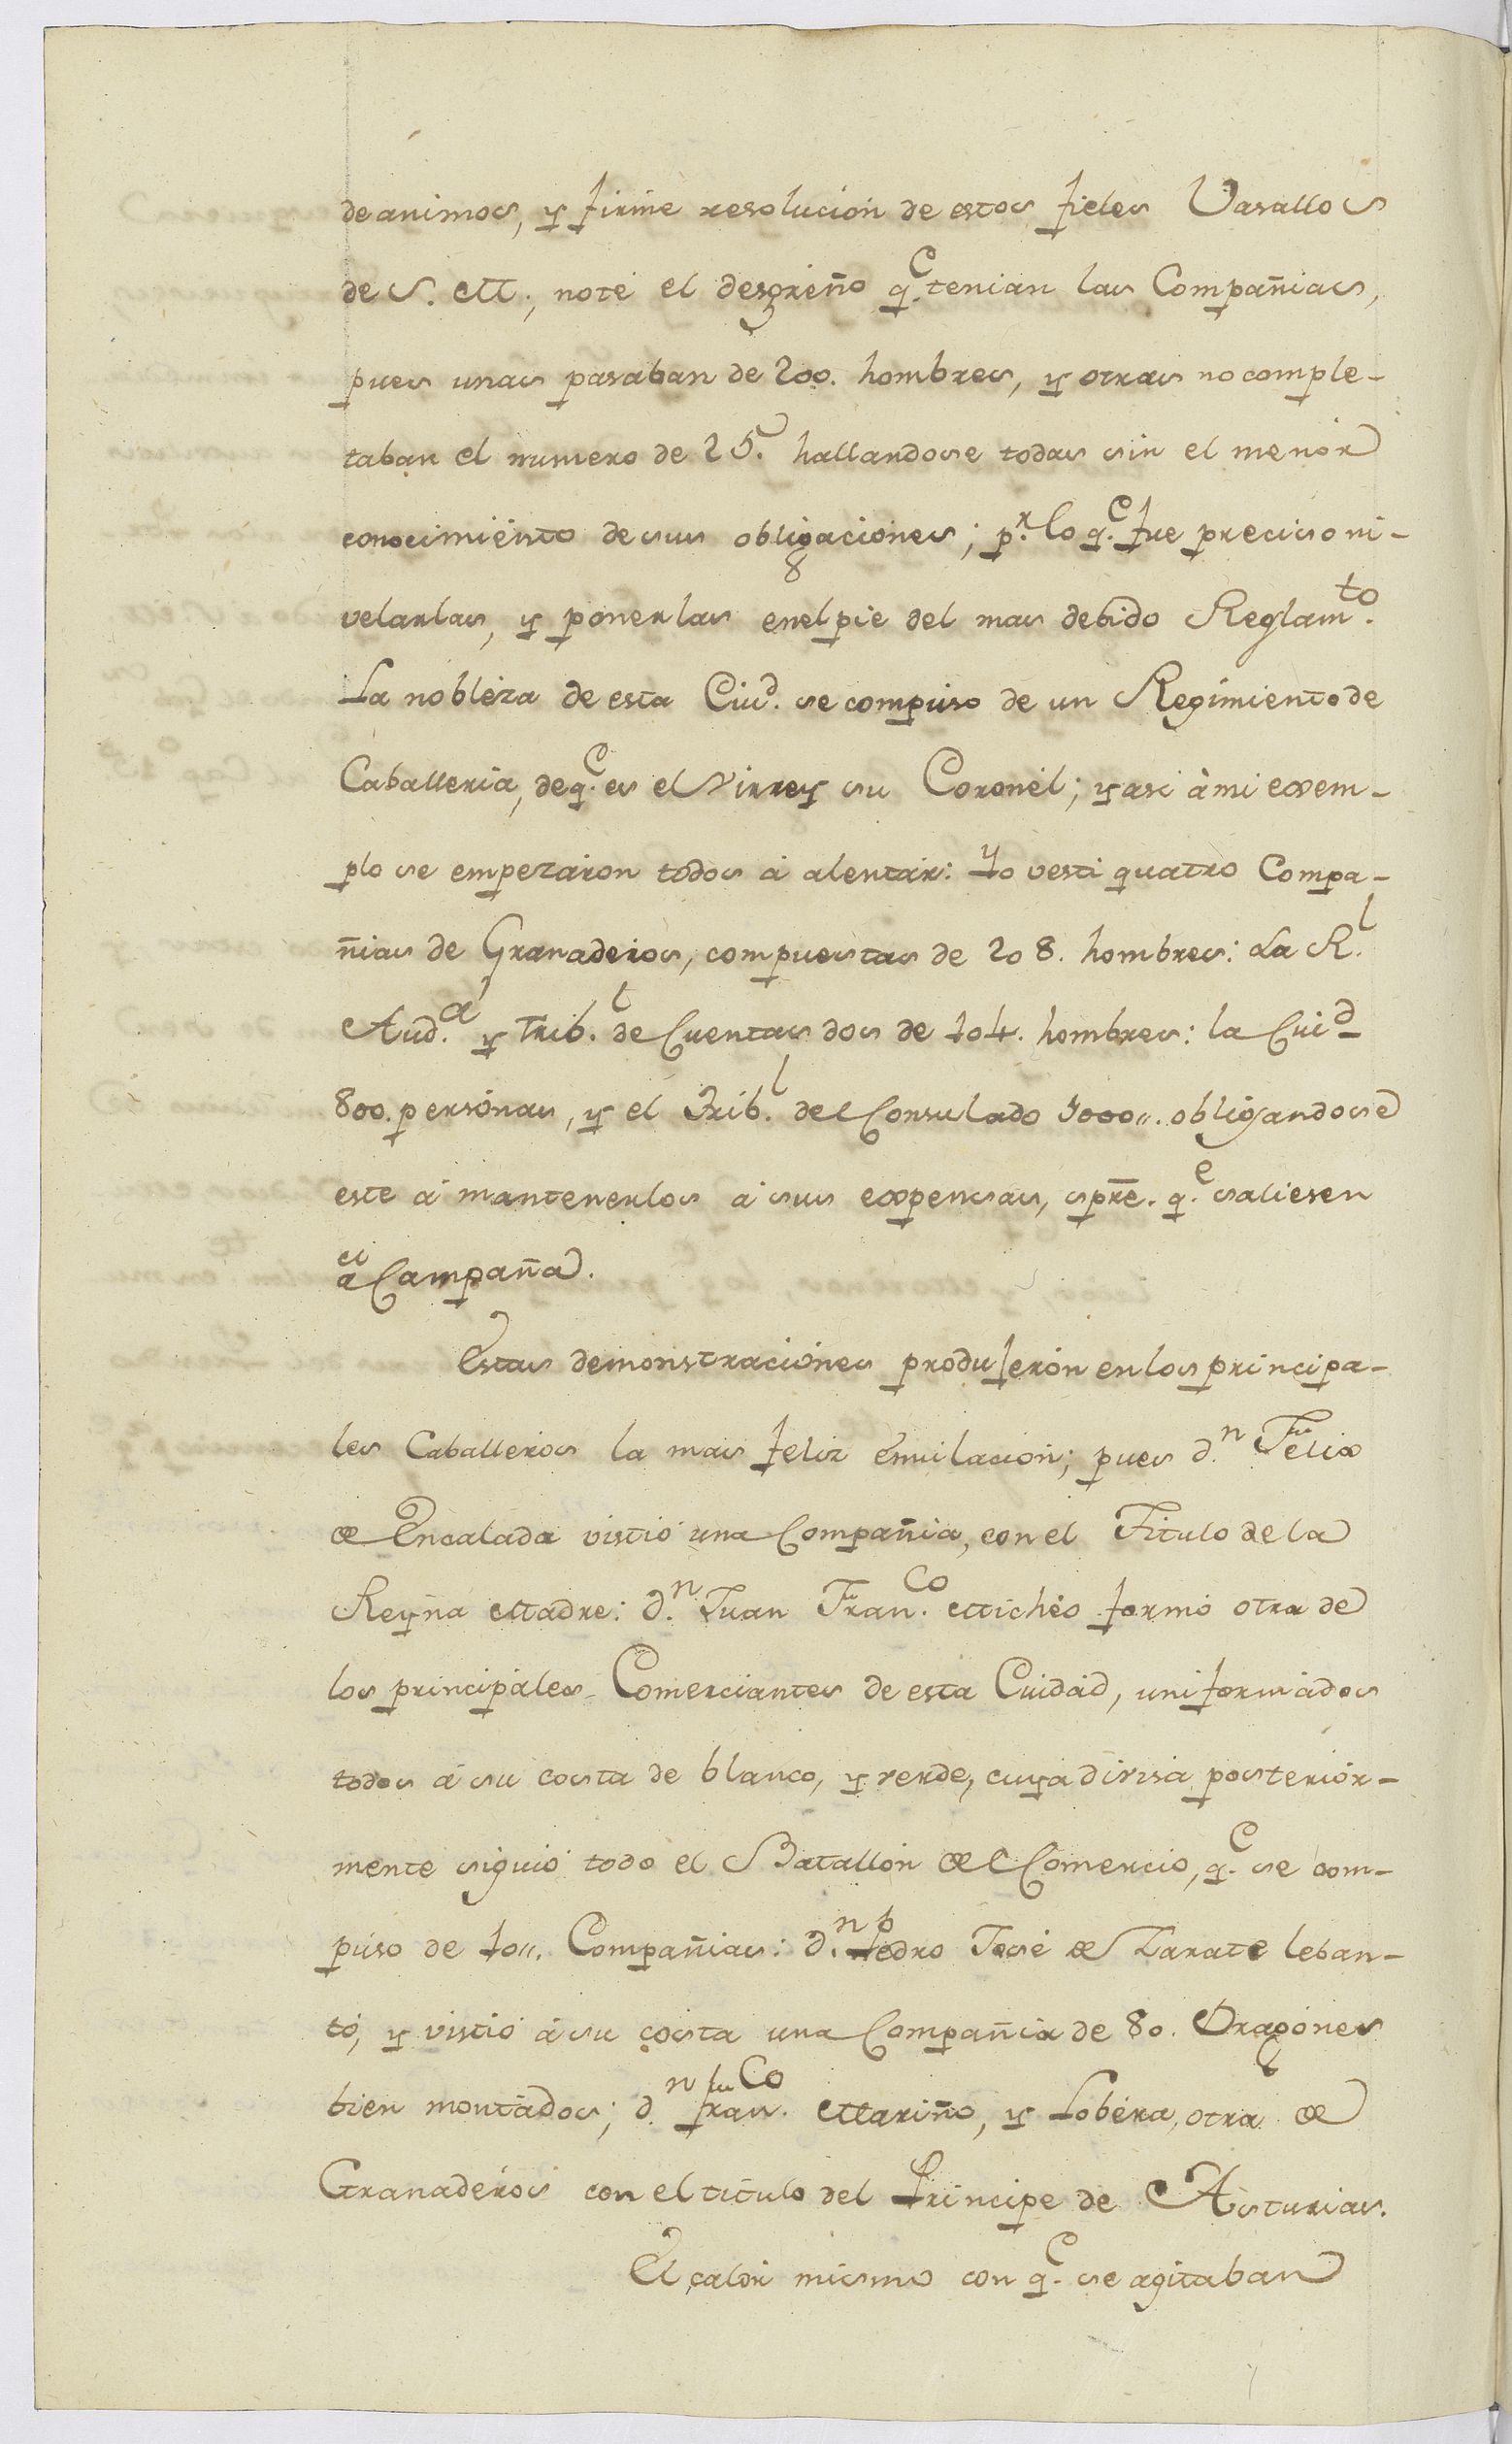 de animos, y firme resolución de estos fieles Vasallos
de S. M., noté el desgreño q.e tenian las Compañias,
pues unas pasaban de 200. hombres, y otras no comple-
taban el numero de 25. hallandose todas sin el menor
conocimiento de sus obligaciones; p.r lo q.e fue preciso ni-
velarlas, y ponerlas en el pie del mas debido Reglam.to
La nobleza de esta Ciu.d se compuso de un Regimiento de
Caballeria, de q.e es el Virrey su Coronel; y asi à mi exem-
plo se empezaron todos à alentar: Yo vesti quatro Compa-
ñias de Granaderos, compuestas de 208. hombres: La R.l
Aud.a y Trib.l de Cuentas dos de 104. hombres: la Cui.d
800. personas, y el Trib.l del Consulado 3000,,. obligandose
este à mantenerlos à sus expensas, spre. q.e saliesen
à Campaña.
Estas demonstraciones produjeron en los principa-
les Caballeros la mas feliz emulacion; pues d.n Felix
de Encalada vistiò una Compañia, con el Titulo de la
Reyna Madre: d.n Juan Fran.co Micheo formó otra de
los principales Comerciantes de esta Cuidad, uniformados
todos à su costa de blanco, y verde, cuya divisa posterior-
mente siguió todo el Batallon del Comercio, q.e se com-
puso de 10,,. Compañias: d.n Pedro José de Zarate leban-
tó, y vistió à su costa una Compañia de 80. Dragones
bien montados; d.n Fran.co Mariño, y Lobera, otra de
Granaderos con el titulo del Principe de Asturias.
El calor mismo con q.e se agitaban